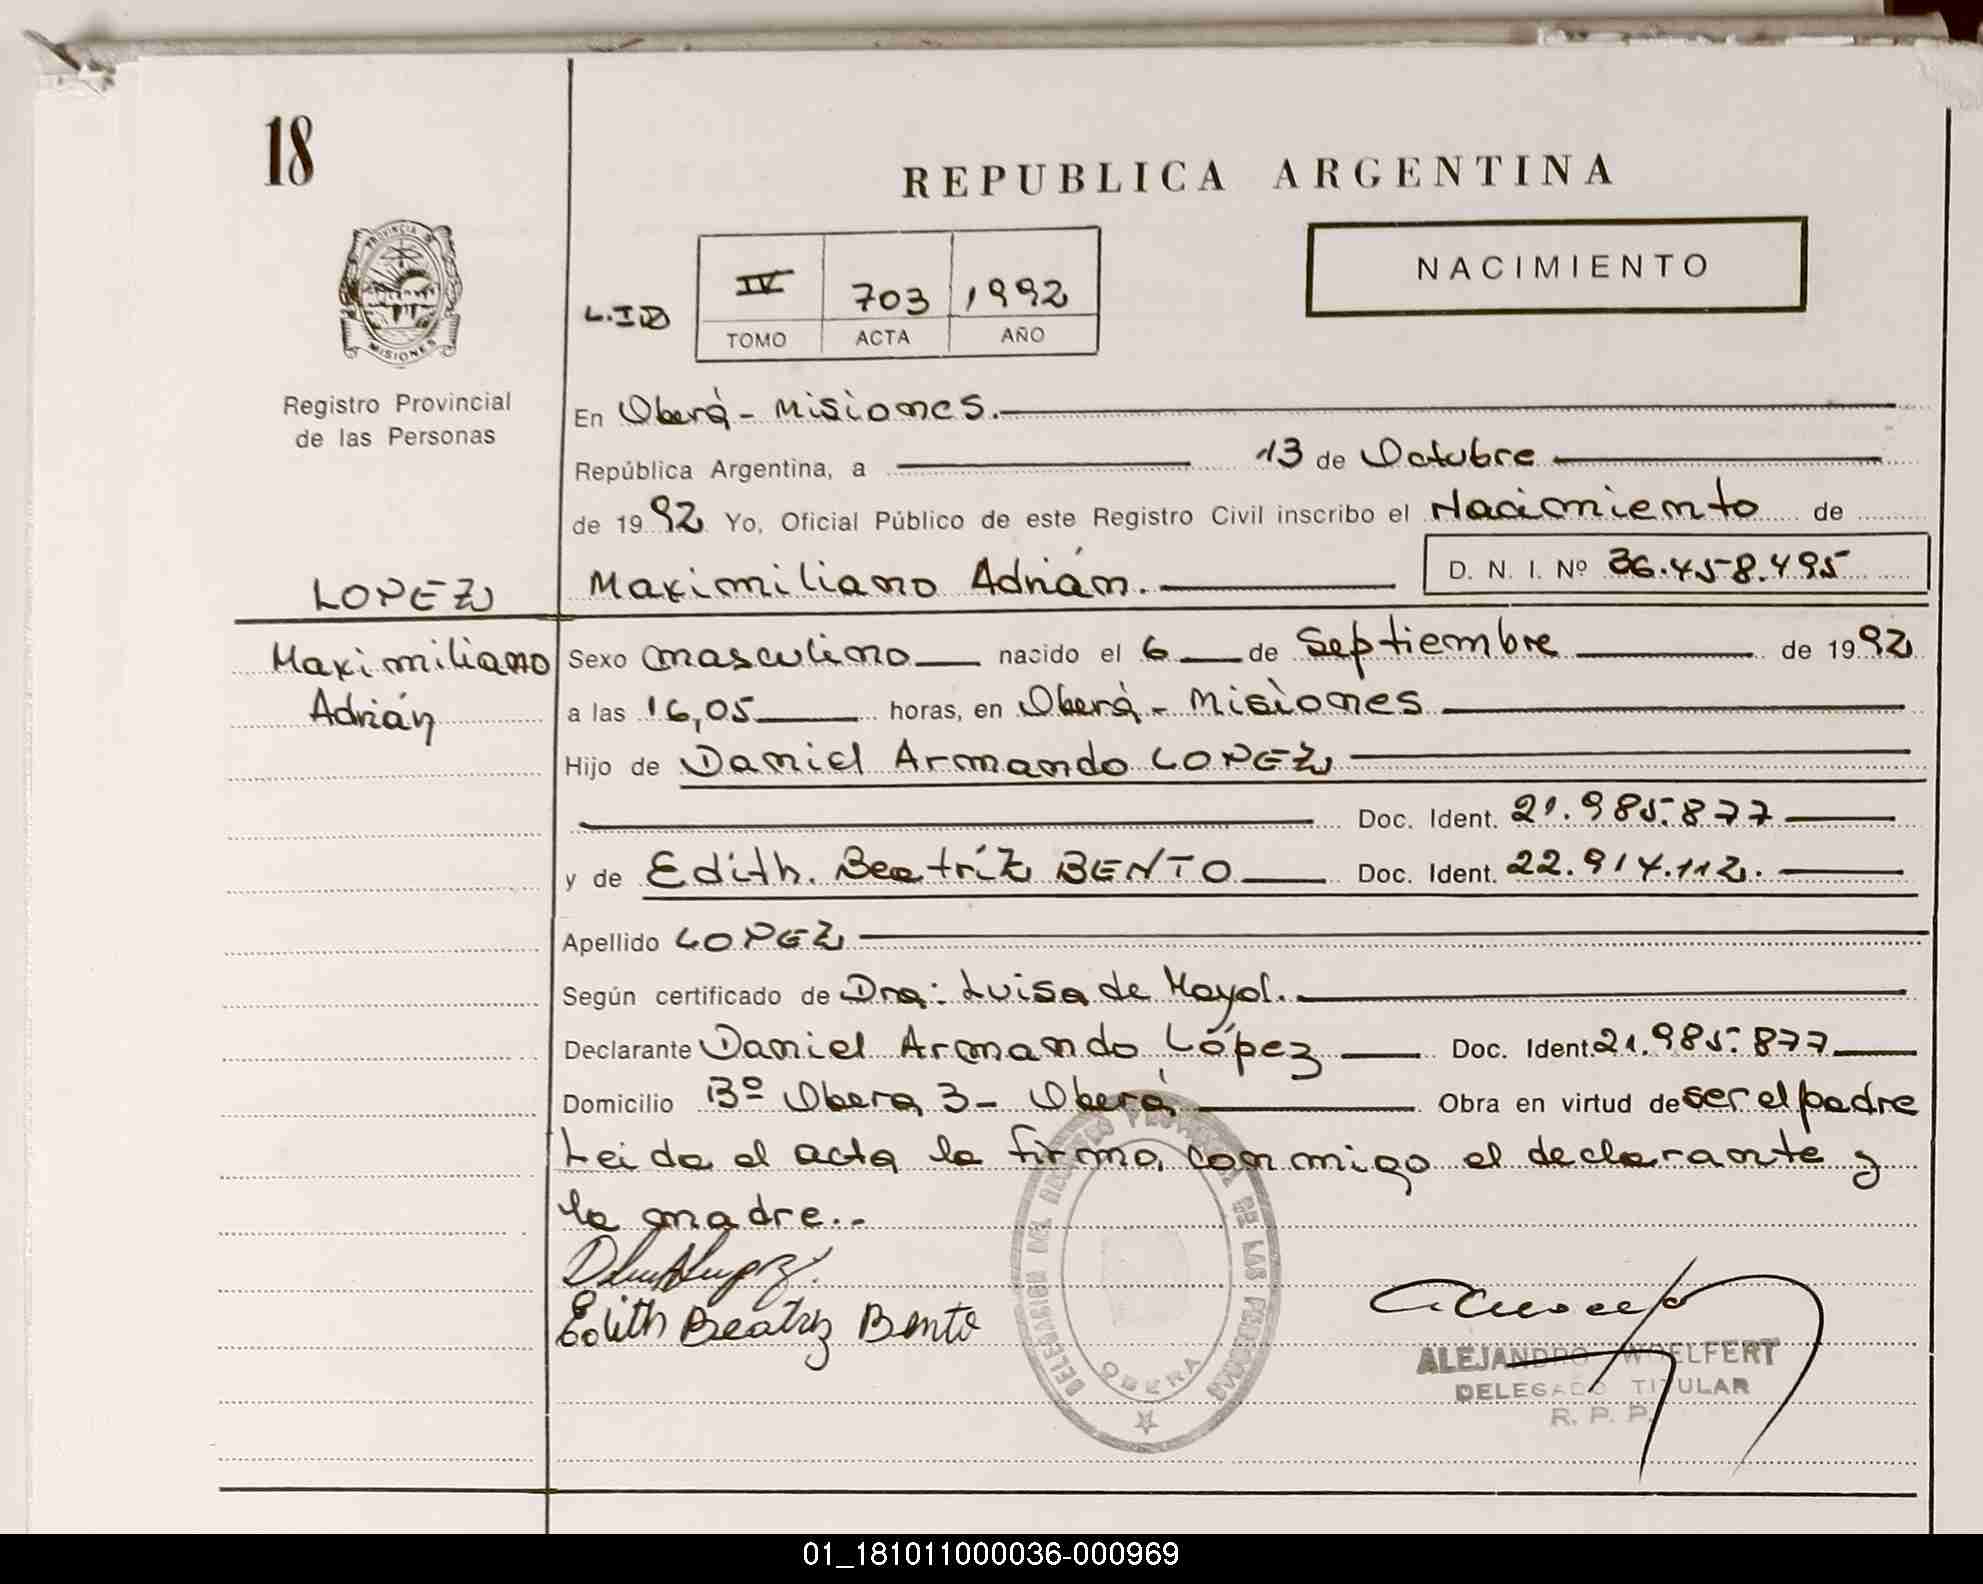 18
REPUBLICA ARGENTINA
PROVINCIA D
MISIONES
NACIMIENTO
IV 703 1992
TOMO ACTA AÑO
Registro Provincial
de las Personas
En Oberá - Misiones.
República Argentina, a 13 de Octubre
de 1992 Yo, Oficial Público de este Registro Civil inscribo el Nacimiento de
LOPEZ
Maximiliano Adrián. D. N. I. Nº 36.458.495
Maximiliano
Adrián
Sexo masculino nacido el 6 de Septiembre de 1992
a las 16,05 horas, en Oberá - Misiones
Hijo de Daniel Armando LOPEZ
Doc. Ident. 21.985.877
y de Edith. Beatríz BENTO Doc. Ident. 22.914.112.
Apellido LOPEZ
Según certificado de Dra: Luisa de Mayol.
Declarante Daniel Armando López Doc. Ident. 21.985.877
Domicilio Bº Obera 3 - Oberá Obra en virtud de ser el padre
Leida el acta la firma, conmigo el declarante y
la madre..-
Edith Beatriz Bento
DELEGACION DEL REGISTRO PROVINCIAL DE LAS PERSONAS
OBERA
ALEJANDRO WOELFERT
DELEGADO TITULAR
R. P. P.
01_181011000036-000969